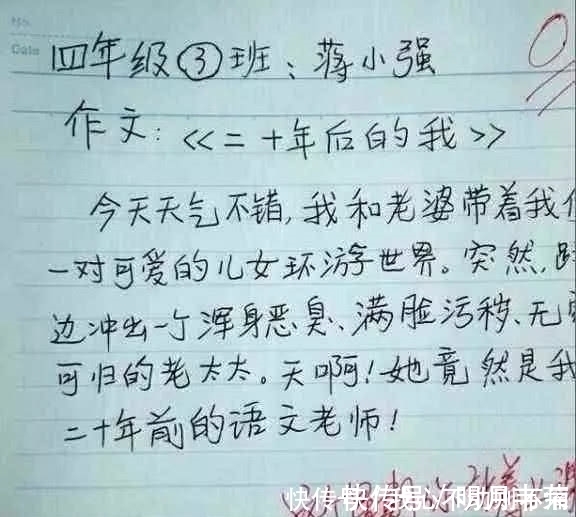 No.
Date
四年级③班：蒋小强
0
作文：《二十年后的我》
今天天气不错,我和老婆带着我
一对可爱的儿女环游世界。突然,
边冲出一个浑身恶臭、满脸污秽、无
可归的老太太。天啊!她竟然是我
二十年前的语文老师!
快传号